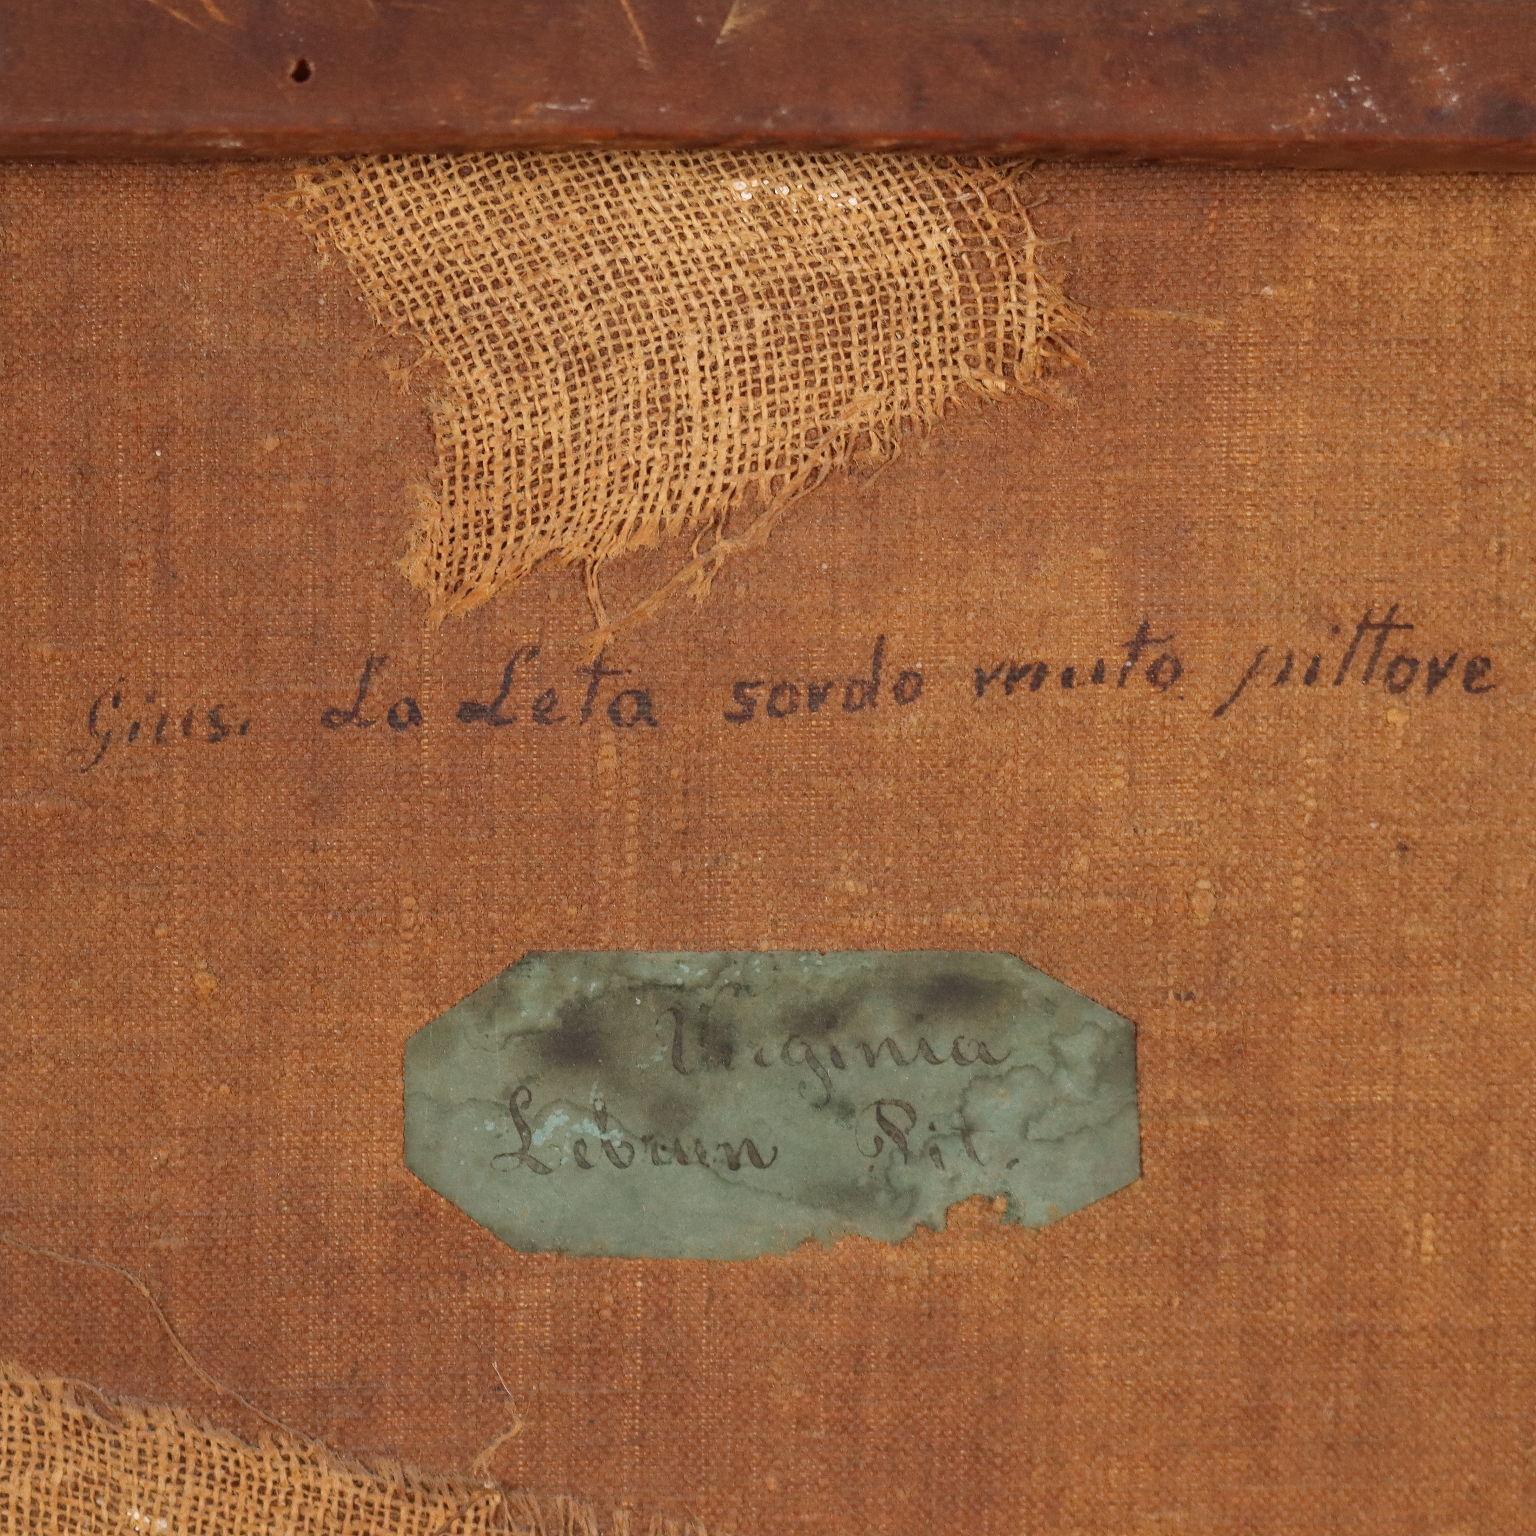 Gius. La Leta sordo muto pittore
Virginia
Lebrun Pit.